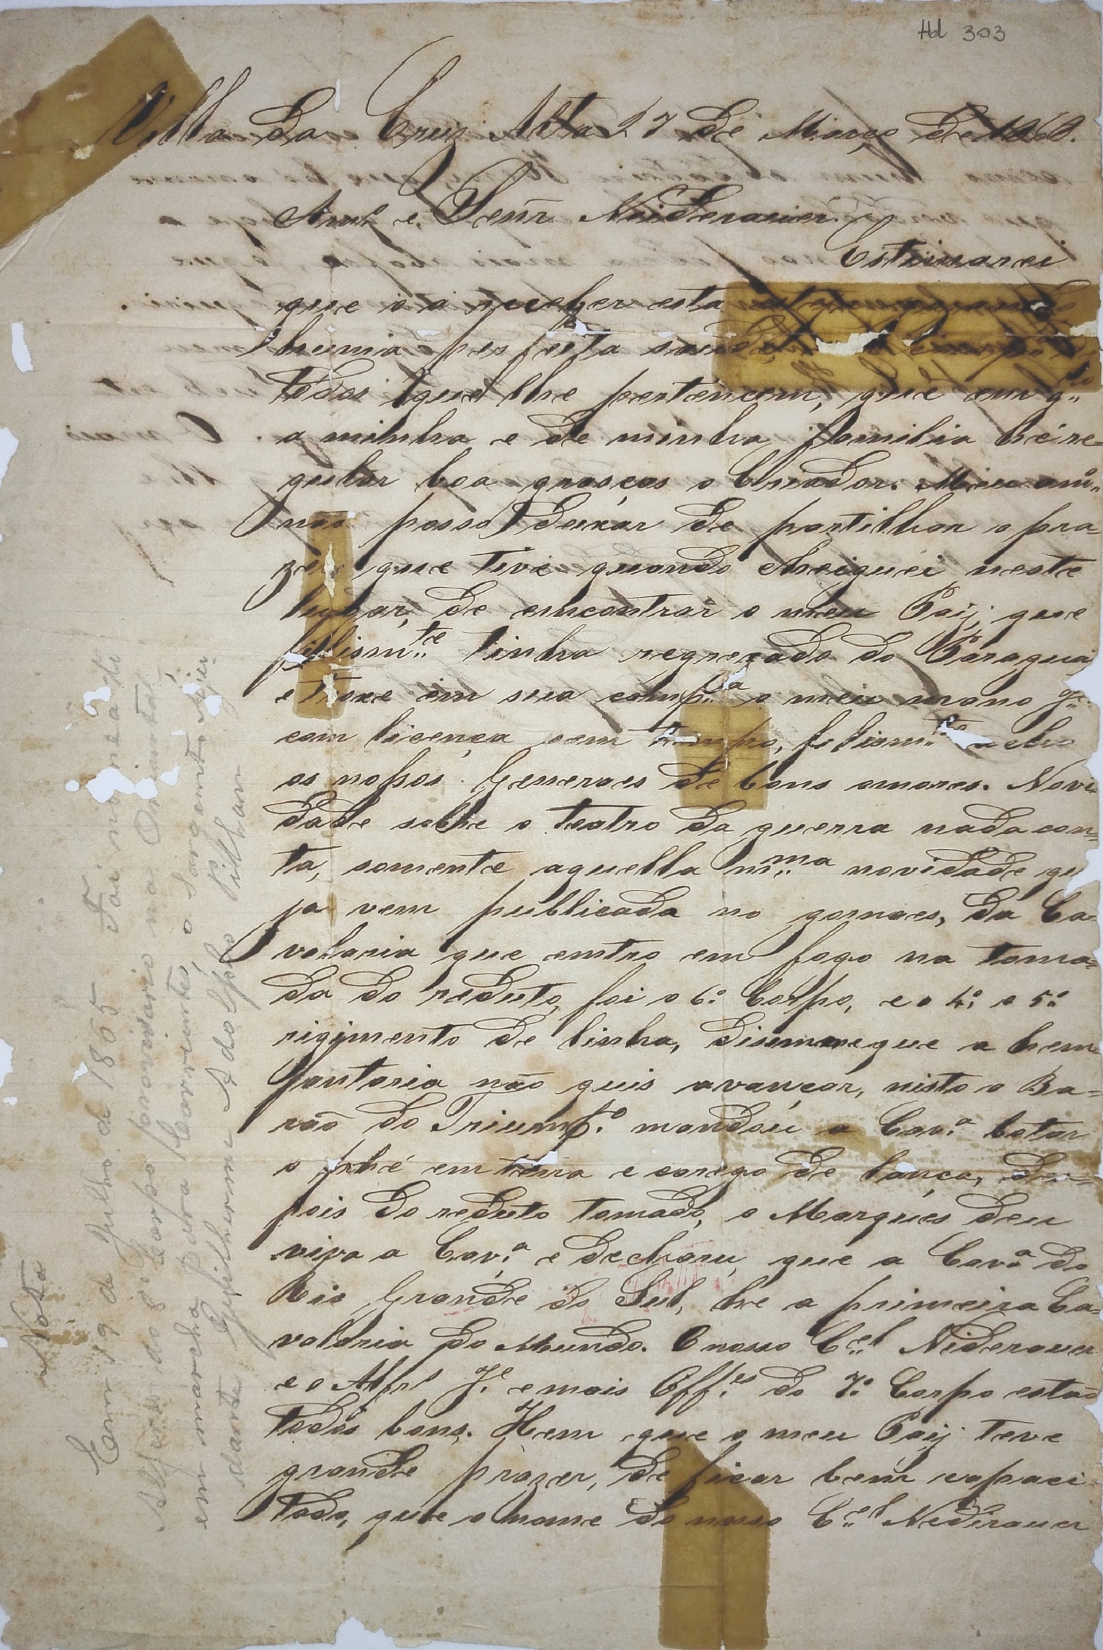 Hd 303
Villa da Cruz Alta 27 de Março de 1868.
Amº e Senr Niederauer
Estimarei
que va a receber esta
huma perfeita saude,
todos que lhe pertencem, que em qto
a minha e de minha familia hé re-
gular boa graças o Criador. Meu amº
não posso deixar de partilhar o pra-
zer que tive quando cheiguei neste
lugar, de emcontrar o meu Paij, que
felismte tinha regreçado do Paraguai
e troxe em sua compa o meu mano Je
com licença sem tempo, felismte
os nossos Generaes de bons amores. Novi-
dade sobre o teatro da guerra nada con-
ta, somente aquella mma novidade qu
ja vem publicada no gornaes, da Ca-
valaria que emtro em fogo na toma-
da do reduto, foi o 6º Corpo, e o 4º e 5º
rigimento de linha, que a hem-
fantaria não quis avançar, nisto o Ba-
rão do Triumpº mandou a Cavª botar
o phé em terra e carega de lança, de-
pois do reduto tomado, o Marques deu
viva a Cavª e declarou, que a Cavª do
Rio Grande do Sul, he a primeira Ca-
valaria do Mundo. O nosso Cel Niderauer
e o Alfrs Je e mais Offes do 7º Corpo estão
todos bons. Hem que o meu Paij teve
grande prazer, de ficar bem capaci-
tado, que o nome do nosso Cel Nederauer
Nota
Em 19 de Julho de 1865 Foi nomeado
Alferes do 8º Corpo provizorio na Oriental
em marcha para Corrientes, o Sargento Aju-
dante Guilherme Adolpho Pithan